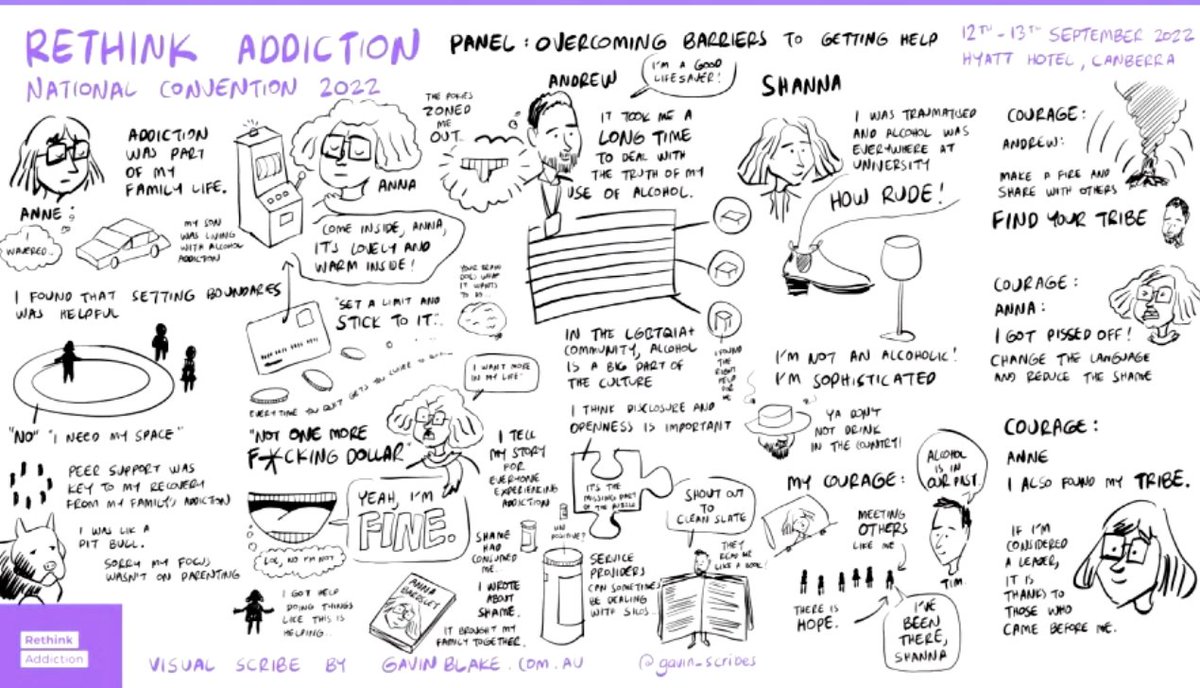 RETHINK ADDICTION
NATIONAL CONVENTION 2022
PANEL: OVERCOMING BARRIERS TO GETTING HELP
12TH - 13TH SEPTEMBER 2022
HYATT HOTEL, CANBERRA
ADDICTION
WAS PART
OF MY
FAMILY LIFE.
ANNE:
I
WAVERED..
MY SON
WAS LIVING
WITH ALCOHOL
ADDICTION
I FOUND THAT SETTING BOUNDARES
WAS HELPFUL
"NO" "I NEED MY SPACE"
PEER SUPPORT WAS
KEY TO MY RECOVERY
FROM MY FAMILY'S ADDICTION
I WAS LIK A
PIT BULL.
SORRY MY FOCUS
WASN'T ON PARENTING
THE POKIES
ZONED
ME
OUT..
ANNA
COME INSIDE, ANNA,
IT'S LOVELY AND
WARM INSIDE!
YOUR BRAIN
DOES WHAT
IT WANTS
TO DO
"SET A LIMIT AND
STICK TO IT"..
EVERY TIME YOU
GETS YOU CLOSER TO
I WANT MORE
IN MY LIFE"
"NOT ONE MORE
F*CKING DOLLAR"
YEAH, I'M
FINE.
LOL, NO I'M NOT
I GOT HELP
DOING THINGS
LIKE THIS IS
HELPING..
ANNA
BARDSLEY
I TELL
MY STORY
FOR
EVERYONE
EXPERIENCING
ADDICTION
SHAME
HAD
CONSUMED
ME.
I WROTE
ABOUT
SHAME.
IT BROUGHT MY
FAMILY TOGETHER.
ANDREW
I'M A GOOD
LIFESAVER!
IT TOOK ME A
LONG TIME
TO DEAL WITH
THE TRUTH OF MY
USE OF ALCOHOL.
I FOUND
THE
RIGHT
HELP
FOR
ME
IN THE LGBTQIA+
COMMUNITY, ALCOHOL
IS A BIG PART OF
THE CULTURE
I THINK DISCLOSURE AND
OPENNESS IS IMPORTANT
IT'S THE
MISSING PART
OF THE PUZZLE
SERVICE
PROVIDERS
CAN SOMETIMES
BE DEALING
WITH SILOS..
SHOUT OUT
TO
CLEAN SLATE
THEY
READ ME
LIKE A BOOK!
SHANNA
I WAS TRAUMATISED
AND ALCOHOL WAS
EVERYWHERE AT
UNIVERSITY
HOW RUDE!
I'M NOT AN ALCOHOLIC!
I'M SOPHISTICATED
YA DON'T
NOT DRINK
IN THE COUNTRY!
MY COURAGE:
MEETING
OTHERS
LIKE ME
THERE IS
HOPE.
ALCOHOL
IS IN
OUR PAST.
TIM
I'VE
BEEN
THERE,
SHANNA
COURAGE:
ANDREW:
MAKE A FIRE AND
SHARE WITH OTHERS
FIND YOUR TRIBE
COURAGE:
ANNA:
I GOT PISSED OFF!
CHANGE THE LANGUAGE
AND REDUCE THE SHAME
COURAGE:
ANNE
I ALSO FOUND MY TRIBE.
IF I'M
CONSIDERED
A LEADER,
IT IS
THANKS TO
THOSE WHO
CAME BEFORE ME.
Rethink
Addiction
VISUAL SCRIBE BY GAVINBLAKE.COM.AU
@gavin_scribes